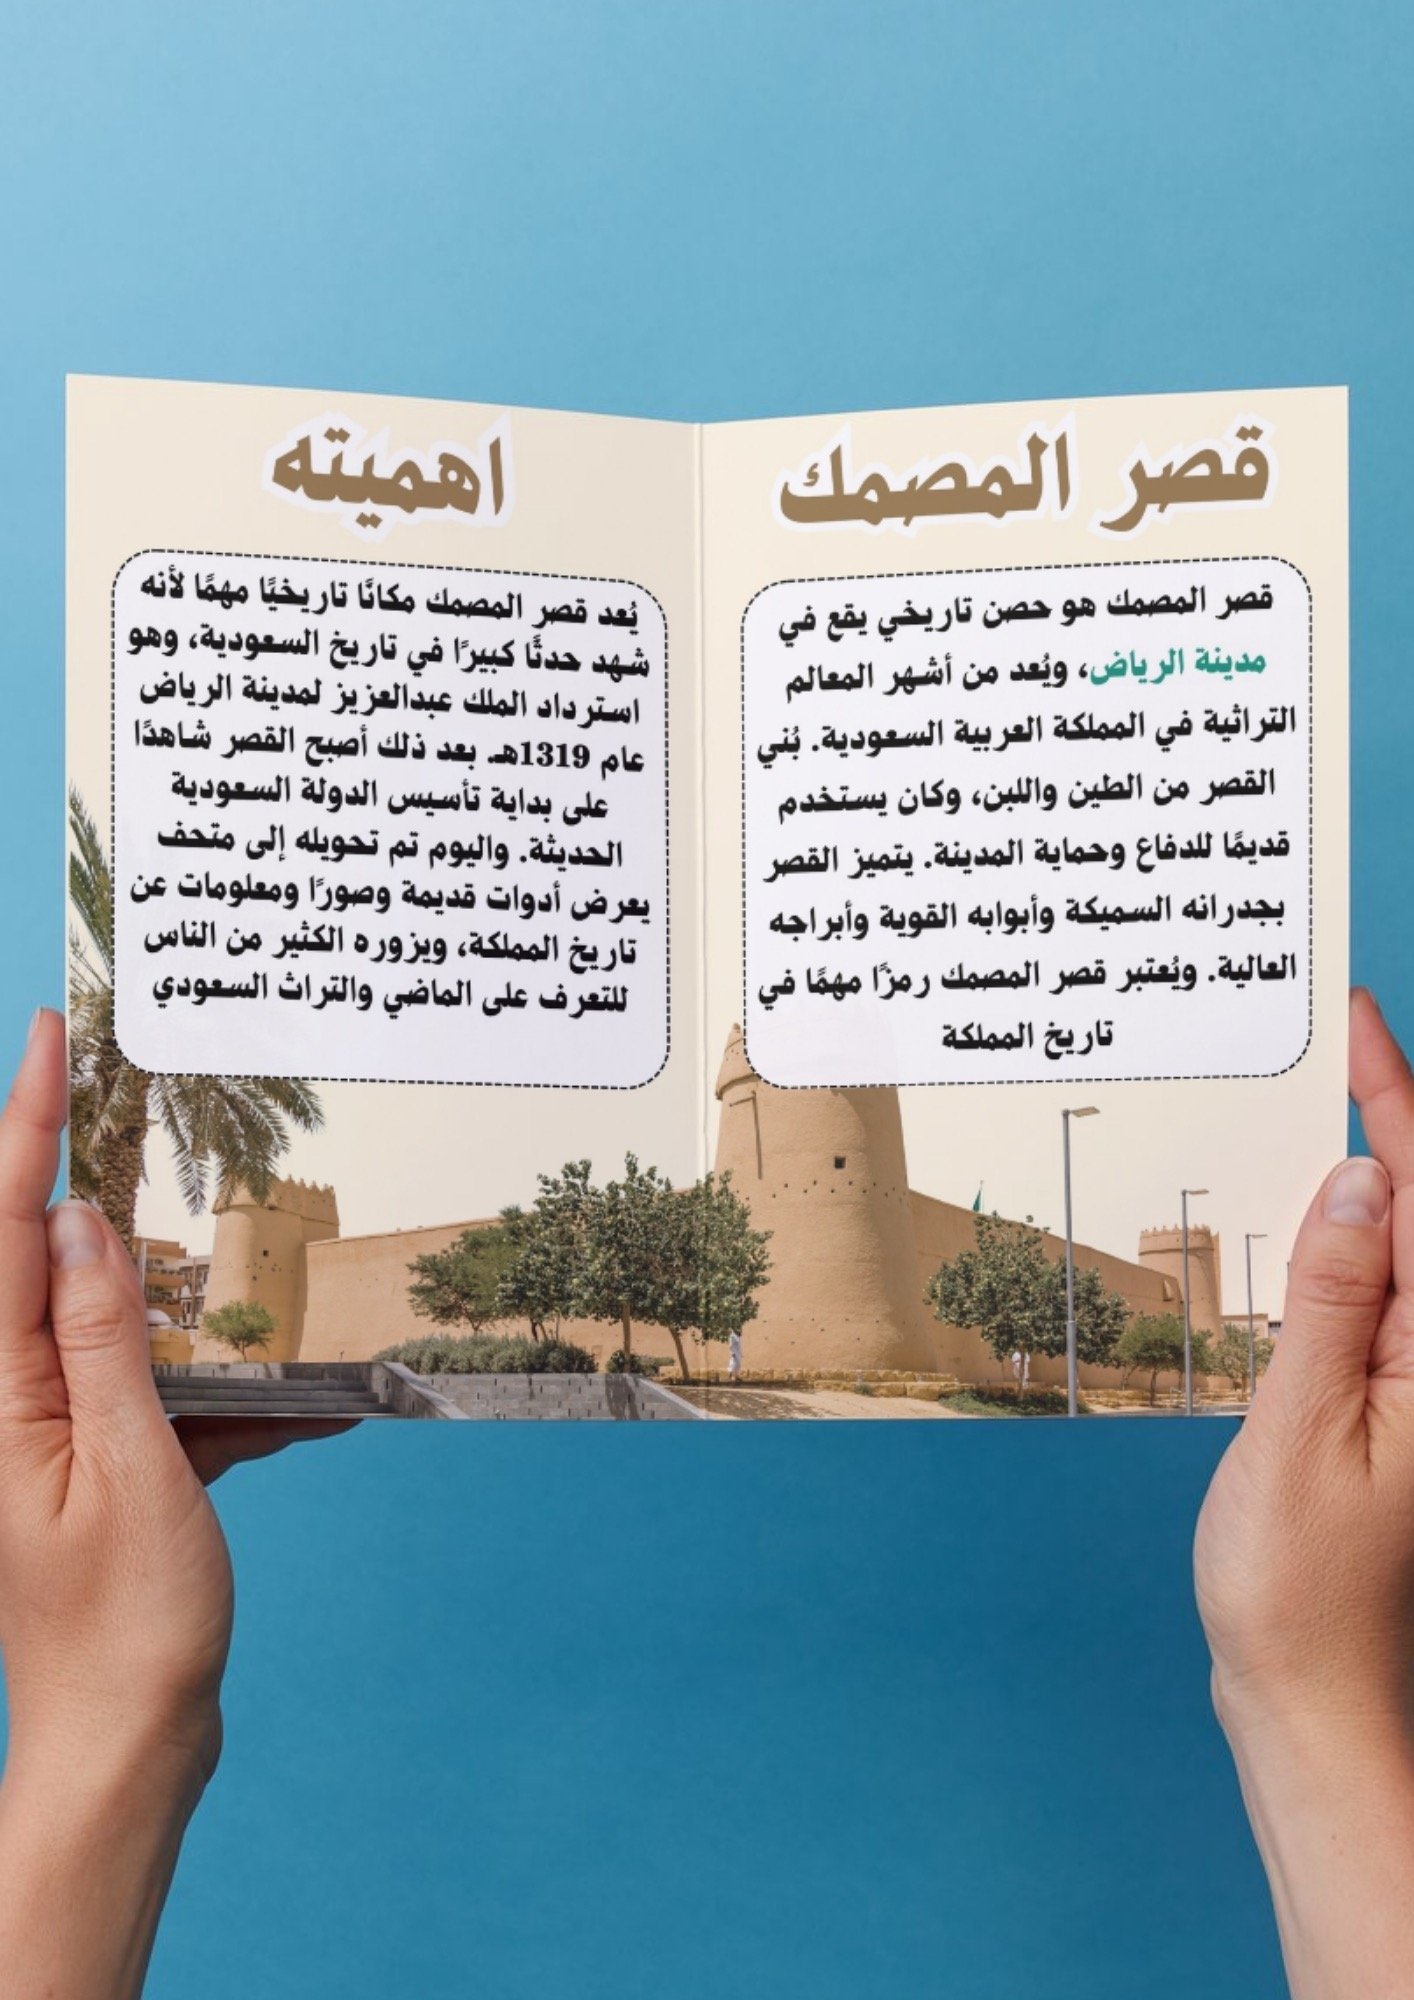 قصر المصمك
قصر المصمك هو حصن تاريخي يقع في
مدينة الرياض، ويُعد من أشهر المعالم
التراثية في المملكة العربية السعودية. بُني
القصر من الطين واللبن، وكان يستخدم
قديمًا للدفاع وحماية المدينة. يتميز القصر
بجدرانه السميكة وأبوابه القوية وأبراجه
العالية. ويُعتبر قصر المصمك رمزًا مهمًا في
تاريخ المملكة
اهميته
يُعد قصر المصمك مكانًا تاريخيًا مهمًا لأنه
شهد حدثًا كبيرًا في تاريخ السعودية، وهو
استرداد الملك عبدالعزيز لمدينة الرياض
عام 1319هـ. بعد ذلك أصبح القصر شاهدًا
على بداية تأسيس الدولة السعودية
الحديثة. واليوم تم تحويله إلى متحف
يعرض أدوات قديمة وصورًا ومعلومات عن
تاريخ المملكة، ويزوره الكثير من الناس
للتعرف على الماضي والتراث السعودي